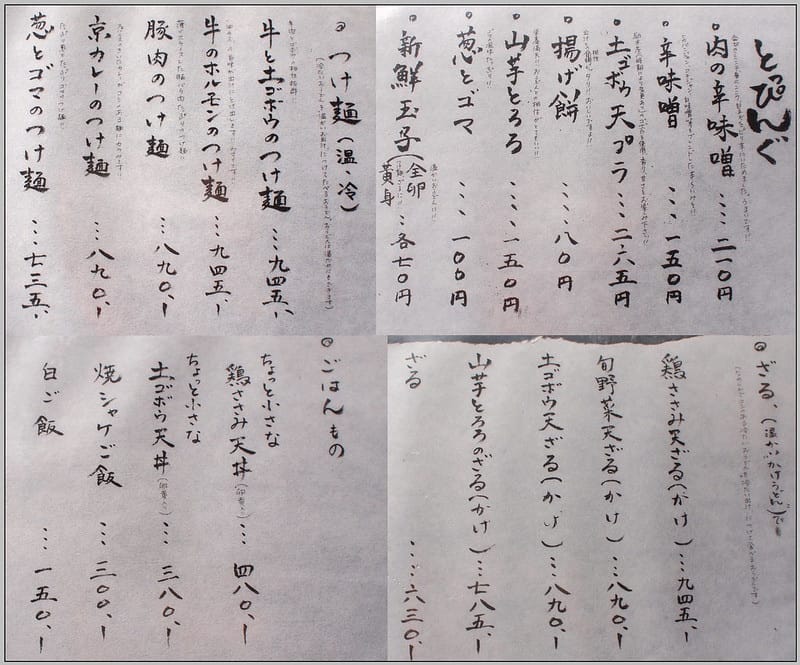 とっぴんぐ
肉の辛味噌……二一〇円
辛味噌……一五〇円
土ゴボウ天プラ……二六五円
揚げ餅……八〇円
山芋とろろ……一五〇円
葱とゴマ……一〇〇円
新鮮玉子(全卵 黄身……各七〇円
つけ麺(温、冷)
牛と土ゴボウのつけ麺……九四五、ー
牛のホルモンのつけ麺……九四五、ー
豚肉のつけ麺……八九〇、ー
京カレーのつけ麺……八九〇、ー
葱とゴマのつけ麺……七三五、ー
ざる、(温かいかけうどん)でも
鶏ささみ天ざる(かけ)……九四五、ー
旬野菜天ざる(かけ)……八九〇、ー
土ゴボウ天ざる(かけ)……八九〇、ー
山芋とろろのざる(かけ)……七八五、ー
ざる……六三〇、ー
ごはんもの
ちょっと小さな
鶏ささみ天丼(卵黄入り)……四八〇、ー
ちょっと小さな
土ゴボウ天丼(卵黄入り)……三八〇、ー
焼シャケご飯……三〇〇、ー
白ご飯……一五〇、ー